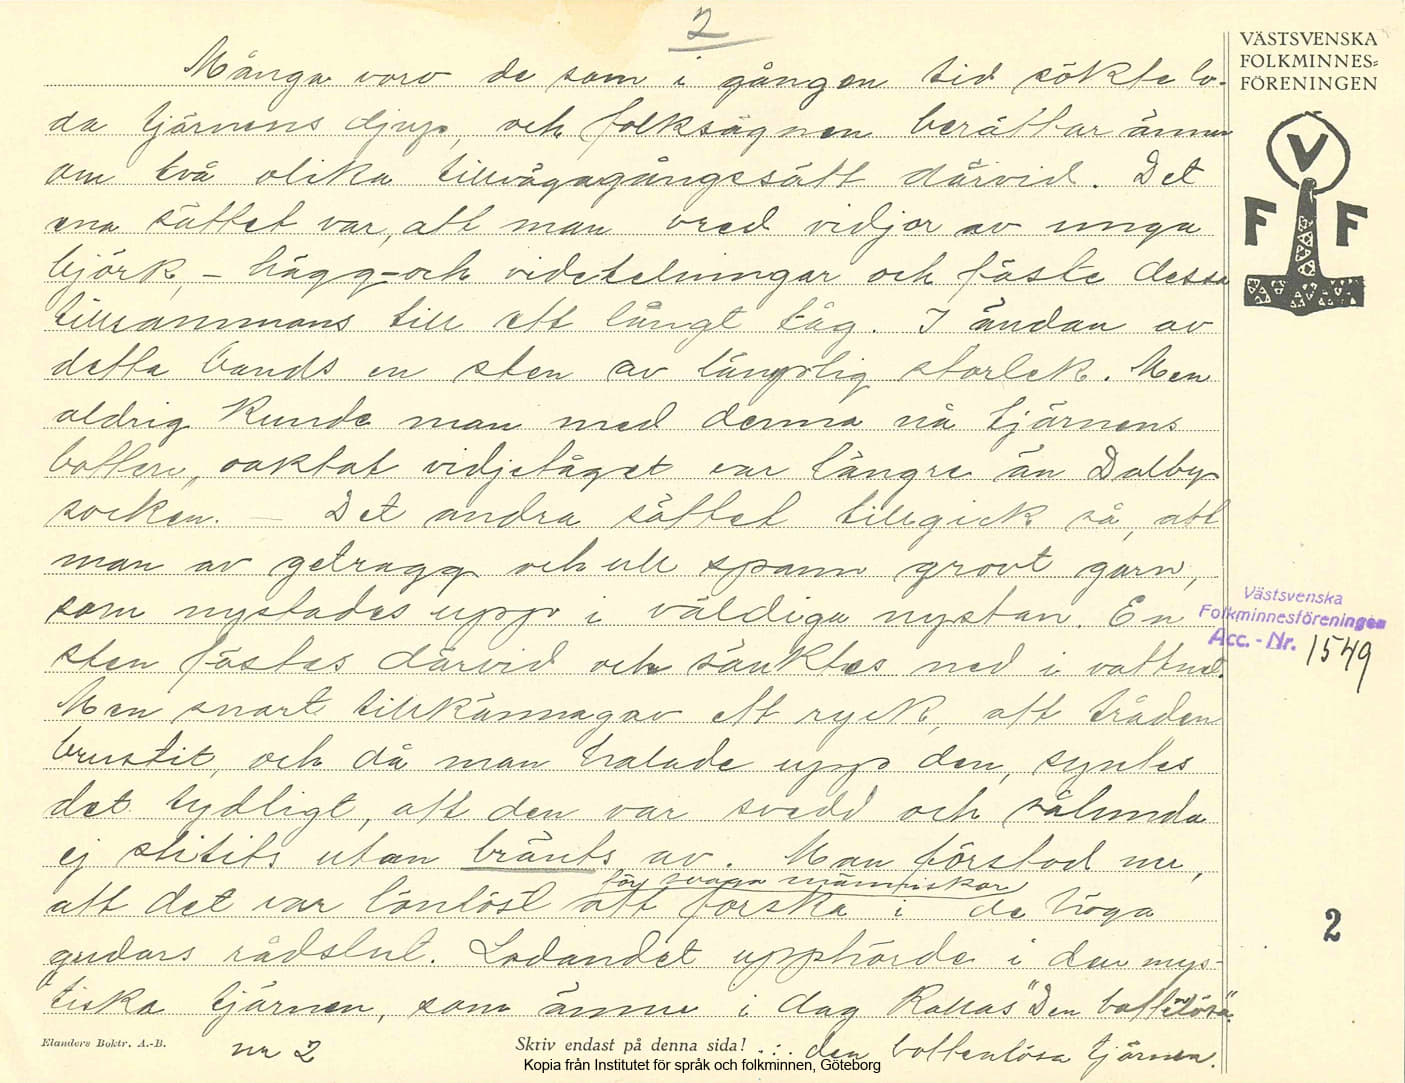 2
VÄSTSVENSKA
FOLKMINNES=
FÖRENINGEN
V
F F
Många voro de som i gången tid sökte lo-
da tjärnens djup, och folksägnen berättar ännu
om två olika tillvägagångssätt därvid. Det
ena sättet var, att man vred vidjor av unga
björk, - hägg- och videtelningar och fäste dessa
tillsammans till ett långt tåg. I ändan av
detta bands en sten av lämplig storlek. Men
aldrig kunde man med denna nå tjärnens
botten, oaktat vidjetåget var längre än Dalby
socken. — Det andra sättet tillgick så, att
man av getragg och ull spann grovt garn,
som nystades upp i väldiga nystan. En
sten fästes därvid och sänktes ned i vattnet.
Men snart tillkännagav ett ryck, att tråden
brustit, och då man halade upp den, syntes
det tydligt, att den var svedd och sålunda
ej slitits utan bränts av. Man förstod nu,
för svaga människor
att det var lönlöst att forska i de höga
gudars rådslut. Lodandet upphörde i den mys-
tiska tjärnen, som ännu i dag kallas "Den bottenlösa".
den bottenlösa tjärnen.
Västsvenska
Folkminnesföreningen
Acc. - Nr. 1549
2
Elanders Boktr. A.-B.
nr 2
Skriv endast på denna sida!
Kopia från Institutet för språk och folkminnen, Göteborg